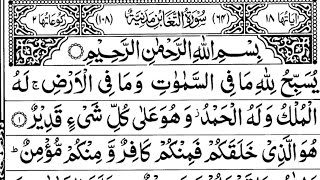 اٰيَاتُهَا ١٨ (٦٤) سُوْرَةُ التَّغَابُنِ مَدَنِيَّةٌ (١٠٨) رُكُوْعَاتُهَا ٢
بِسْمِ اللّٰهِ الرَّحْمٰنِ الرَّحِيْمِ
يُسَبِّحُ لِلّٰهِ مَا فِى السَّمٰوٰتِ وَمَا فِى الْاَرْضِ ۚ لَهُ
الْمُلْكُ وَلَهُ الْحَمْدُ ۫ وَهُوَ عَلٰى كُلِّ شَىْءٍ قَدِيْرٌ ۝١
هُوَ الَّذِىْ خَلَقَكُمْ فَمِنْكُمْ كَافِرٌ وَّ مِنْكُمْ مُّؤْمِنٌ ؕ